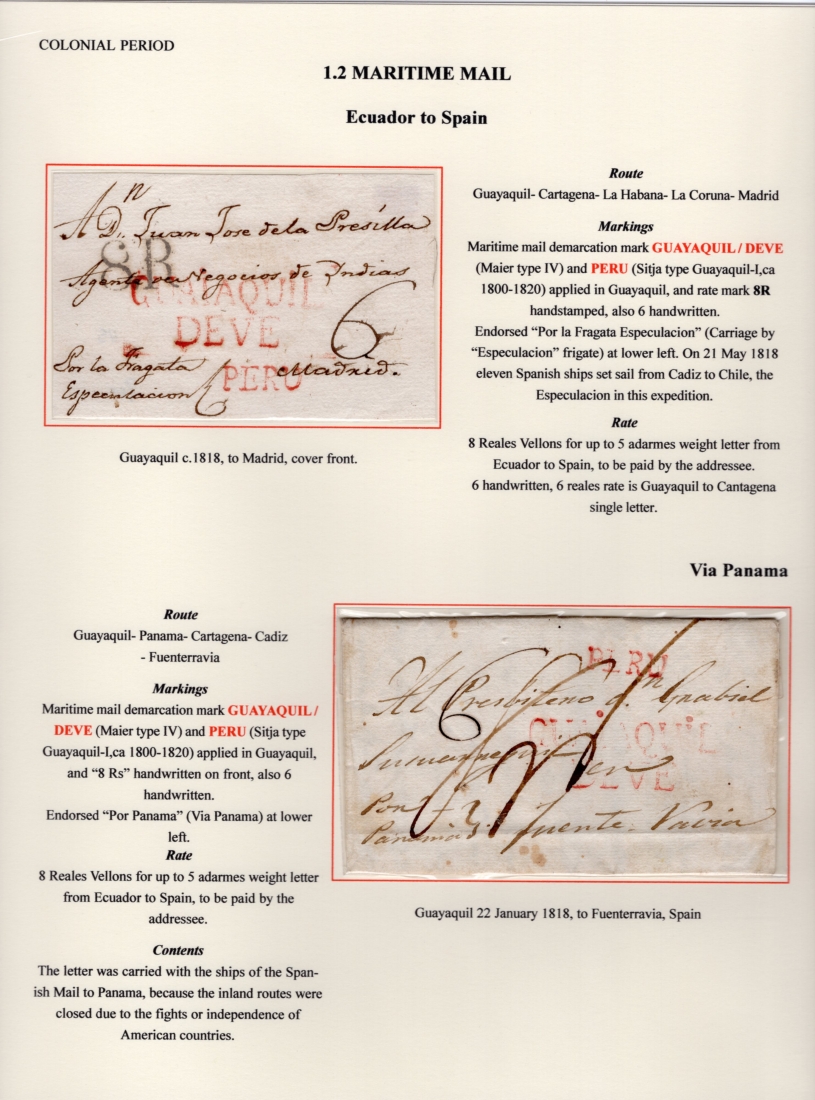 COLONIAL PERIOD
1.2 MARITIME MAIL
Ecuador to Spain
A Dn. Juan Jose de la Presilla
8R
Agente de Negocios de Indias
GUAYAQUIL
DEVE
6
Por la Fragata
Madrid.
PERU
Especulacion
Guayaquil c.1818, to Madrid, cover front.
Route
Guayaquil- Cartagena- La Habana- La Coruna- Madrid
Markings
Maritime mail demarcation mark GUAYAQUIL / DEVE
(Maier type IV) and PERU (Sitja type Guayaquil-I,ca
1800-1820) applied in Guayaquil, and rate mark 8R
handstamped, also 6 handwritten.
Endorsed “Por la Fragata Especulacion” (Carriage by
“Especulacion” frigate) at lower left. On 21 May 1818
eleven Spanish ships set sail from Cadiz to Chile, the
Especulacion in this expedition.
Rate
8 Reales Vellons for up to 5 adarmes weight letter from
Ecuador to Spain, to be paid by the addressee.
6 handwritten, 6 reales rate is Guayaquil to Cantagena
single letter.
Via Panama
Route
Guayaquil- Panama- Cartagena- Cadiz
- Fuenterravia
Markings
Maritime mail demarcation mark GUAYAQUIL /
DEVE (Maier type IV) and PERU (Sitja type
Guayaquil-I,ca 1800-1820) applied in Guayaquil,
and “8 Rs” handwritten on front, also 6
handwritten.
Endorsed “Por Panama” (Via Panama) at lower
left.
Rate
8 Reales Vellons for up to 5 adarmes weight letter
from Ecuador to Spain, to be paid by the
addressee.
Contents
The letter was carried with the ships of the Span-
ish Mail to Panama, because the inland routes were
closed due to the fights or independence of
American countries.
PERU
Al Presbitero dn. Grabiel
6
GUAYAQUIL
en
DEVE
Por
Panamá
Fuente Ravia
Guayaquil 22 January 1818, to Fuenterravia, Spain